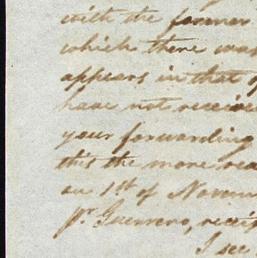 with the former
which there was
appears in that of
have not receive
your forwarding
this the more rea
on 1st of Novem
pr Guerrero, recei
I see